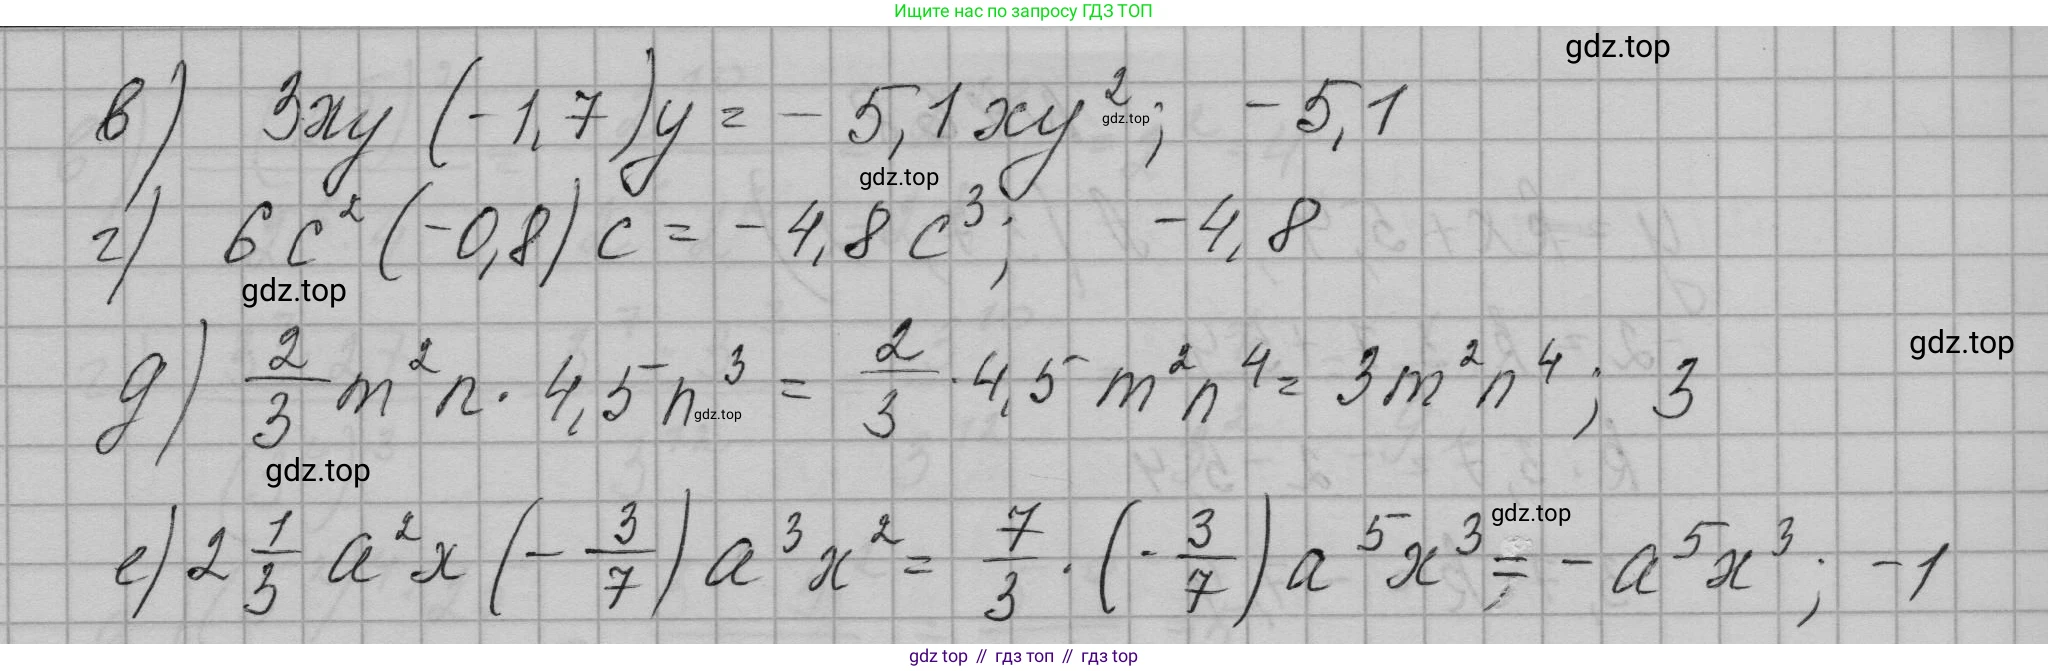 Ищите нас по запросу ГДЗ ТОП
gdz.top
в) 3xy(-1,7)y = -5,1xy²; -5,1
gdz.top
gdz.top
г) 6c²(-0,8)c = -4,8c³; -4,8
gdz.top
gdz.top
д) 2/3 m²n · 4,5n³ = 2/3 · 4,5 m²n⁴ = 3m²n⁴; 3
gdz.top
gdz.top
gdz.top
е) 2 1/3 a²x(-3/7)a³x² = 7/3 · (-3/7)a⁵x³ = -a⁵x³; -1
gdz top // гдз топ // гдз top